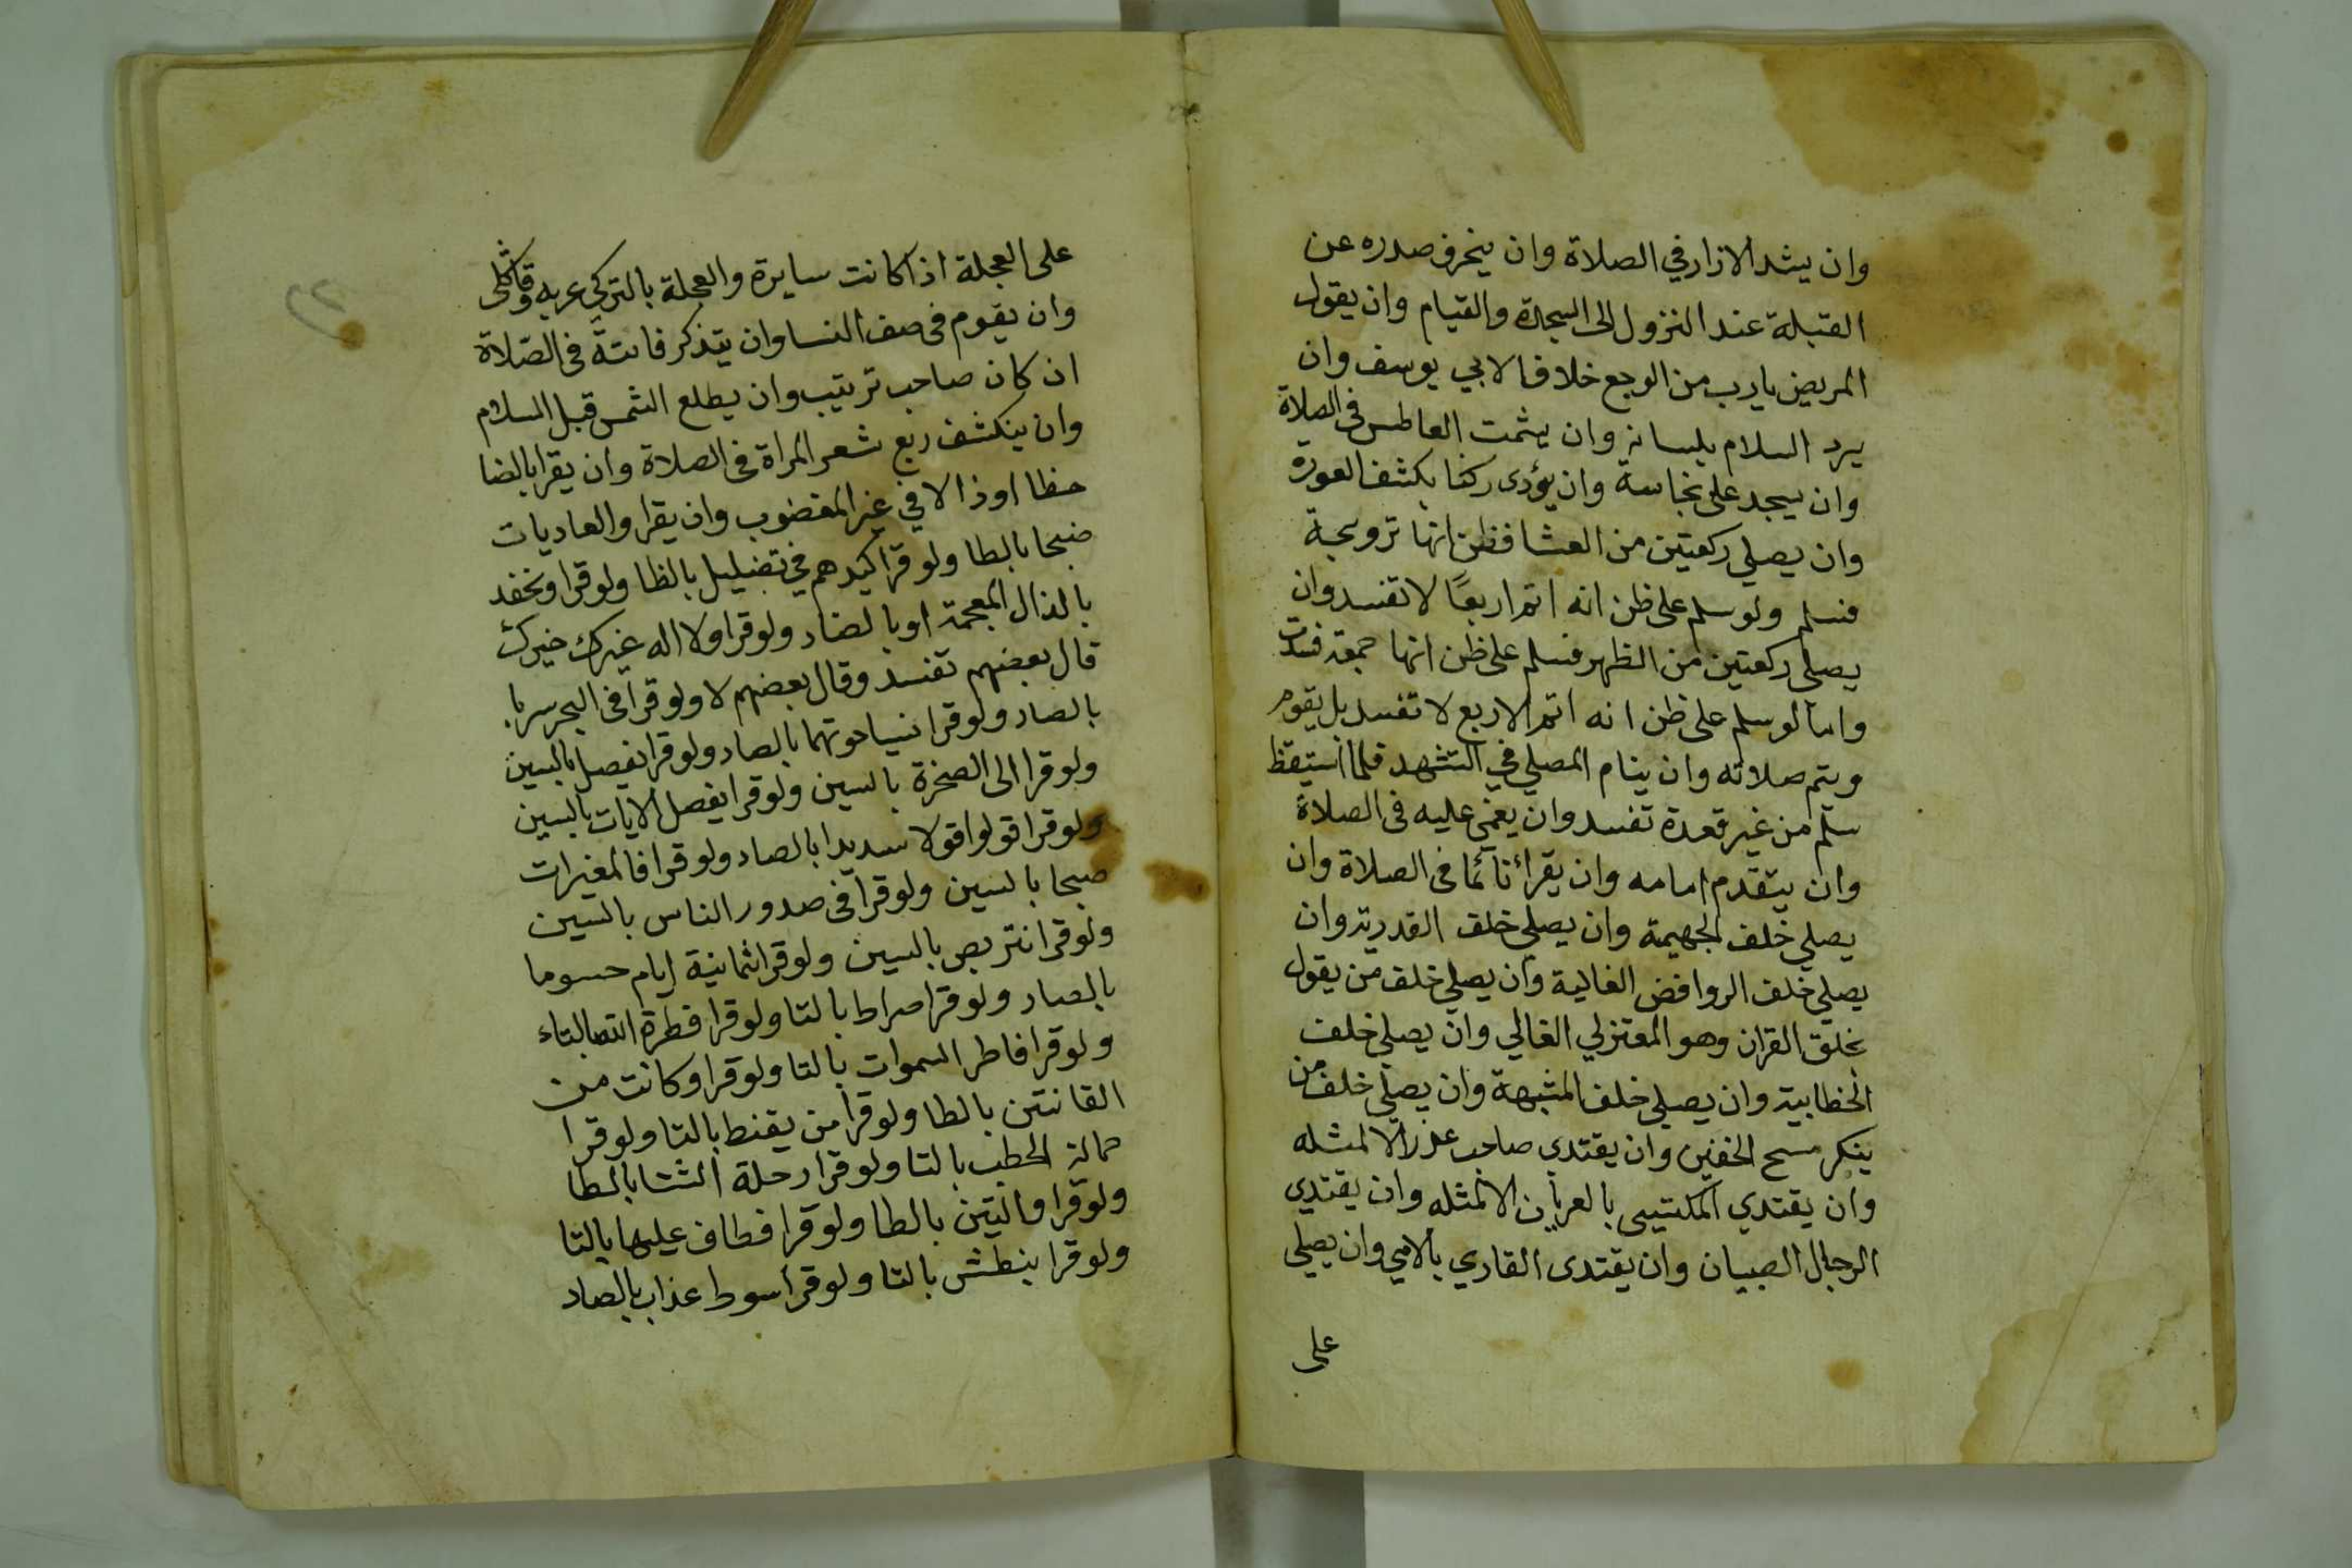 وان يشد الازار في الصلاة وان ينحرف صدره عن
القبلة عند النزول الى السجدة والقيام وان يقول
المريض يا رب من الوجع خلافا لابي يوسف وان
يرد السلام بلسانه وان يشمت العاطس فى الصلاة
وان يسجد على نجاسة وان يؤدى ركنا بكشف العورة
وان يصلي ركعتين من العشا فظن انها ترويحة
فسلم ولو سلم على ظن انه اتم اربعًا لا تفسد وان
يصلى ركعتين من الظهر فسلم على ظن انها جمعة فسدت
واما لو سلم على ظن انه اتم الاربع لا تفسد بل يقوم
ويتم صلاته وان ينام المصلي في التشهد فلما استيقظ
سلم من غير قعدة تفسد وان يغمى عليه فى الصلاة
وان يتقدم امامه وان يقرأ نآئما فى الصلاة وان
يصلي خلف الجهيمة وان يصلي خلف القدرية وان
يصلي خلف الروافض الغالية وان يصلي خلف من يقول
بخلق القران وهو المعتزلي الغالي وان يصلي خلف
الخطابية وان يصلي خلف المشبهة وان يصلي خلف من
ينكر مسح الخفين وان يقتدي صاحب عذر الا لمثله
وان يقتدي المكتسي بالعريان الا لمثله وان يقتدي
الرجال الصبيان وان يقتدى القاري بالامي وان يصلي
على
على العجلة اذا كانت سايرة والعجلة بالتركى عربه
وان يقوم فى صف النسا وان يتذكر فائتة فى الصلاة
ان كان صاحب ترتيب وان يطلع الشمس قبل السلام
وان ينكشف ربع شعر المراة فى الصلاة وان يقرا بالضا
حظا او ذالا في غير المغضوب وان يقرا والعاديات
ضبحا بالطا ولو قرا كيدهم في تضليل بالظا ولو قرا ونحفد
بالذال المعجمة او بالضاد ولو قرا ولا اله غيرك خيرك
قال بعضهم تفسد وقال بعضهم لا ولو قرا فى البحر سربا
بالصاد ولو قرا نسيا حوتهما بالصاد ولو قرا يفصل بالسين
ولو قرا الى الصخرة بالسين ولو قرا يفصل الايات بالسين
ولو قرا قولوا قولا سديدا بالصاد ولو قرا فالمغيرات
صبحا بالسين ولو قرا فى صدور الناس بالسين
ولو قرا نتربص بالسين ولو قرا ثمانية ايام حسوما
بالصاد ولو قرا صراط بالتا ولو قرا فطرة الله بالتاء
ولو قرا فاطر السموات بالتا ولو قرا وكانت من
القانتين بالطا ولو قرا من يقنط بالتا ولو قرا
حمالة الحطب بالتا ولو قرا رحلة الشتا بالطا
ولو قرا والتين بالطا ولو قرا فطاف عليها بالتا
ولو قرا بنطش بالتا ولو قرا سوط عذاب بالصاد